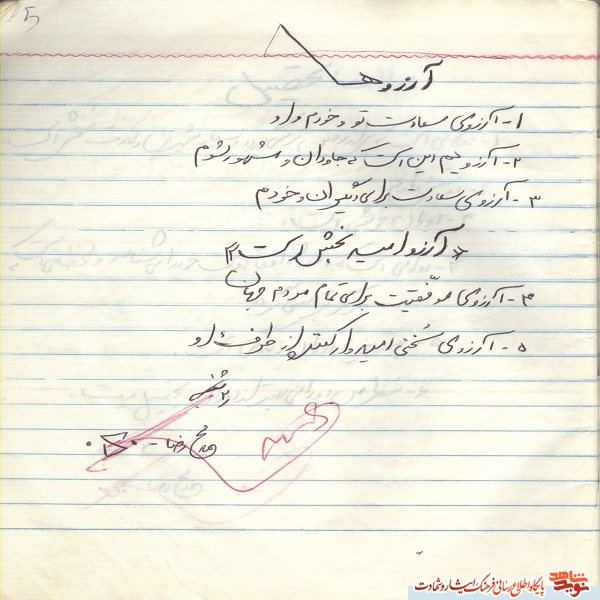 آرزوها
۱- آرزوی سعادت تو و خودم و او
۲- آرزویم این است که جاودان و مشهور شوم
۳- آرزوی سعادت برای دیگران و خودم
« آرزو امید بخش است »
۴- آرزوی موفقیت برای تمام مردم جهان
۵- آرزوی سخنی امیدوار کننده از طرف او
رضا
نوید شاهد
پایگاه اطلاع رسانی فرهنگ ایثار و شهادت